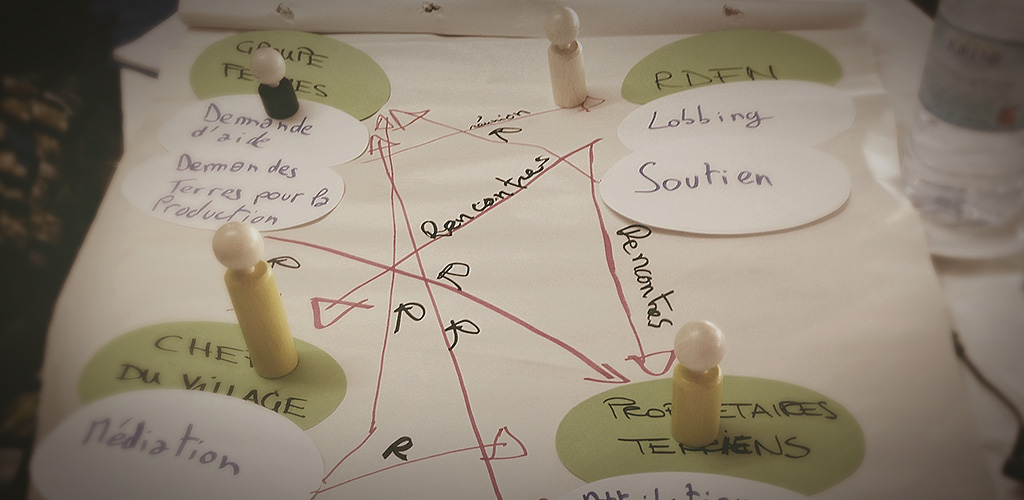 GROUPE
FEMMES
Demande
d'aide
Demandes
Terres pour la
Production
RDFN
Lobbing
Soutien
réunion
R
Rencontres
Rencontres
R
R
R
R
CHEF
DU VILLAGE
Médiation
R
PROPRIETAIRES
TERRIENS